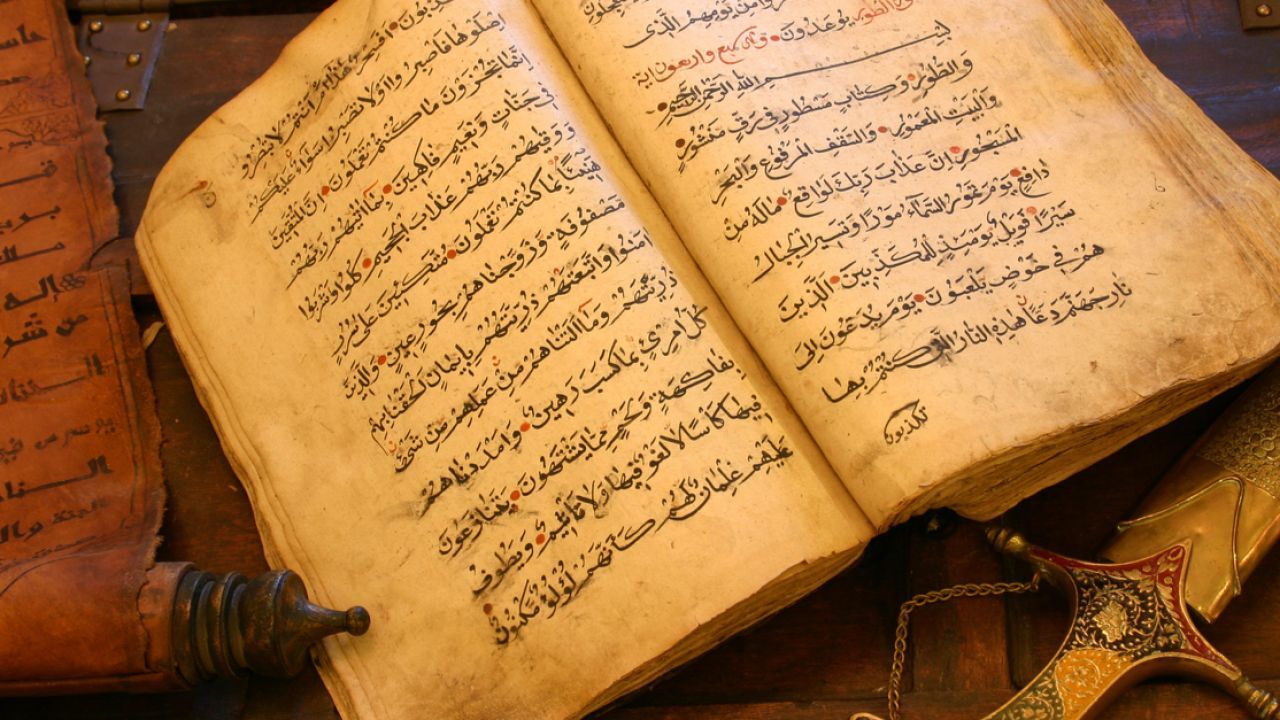 من يومهم الذي
يوعدون الطور وهي سبع واربعون اية
بسم الله الرحمن الرحيم
والطور وكتاب مسطور في رق منشور
والبيت المعمور والسقف المرفوع والبحر
المسجور ان عذاب ربك لواقع ماله من
دافع يوم تمور السماء مورا وتسير الجبال
سيرا فويل يومئذ للمكذبين الذين
هم في خوض يلعبون يوم يدعون الى
نار جهنم دعا هذه النار التي كنتم بها
تكذبون
تكذبون افسحر هذا ام انتم لا تبصرون
اصلوها فاصبروا او لا تصبروا سواء عليكم
انما تجزون ما كنتم تعملون ان المتقين
في جنات ونعيم فاكهين بما اتيهم ربهم
ووقيهم ربهم عذاب الجحيم كلوا واشربوا
هنيئا بما كنتم تعملون متكئين على سرر
مصفوفة وزوجناهم بحور عين والذين
امنوا واتبعتهم ذريتهم بايمان الحقنا بهم
ذريتهم وما التناهم من عملهم من شيء
كل امرئ بما كسب رهين وامددناهم
بفاكهة ولحم مما يشتهون يتنازعون
فيها كأسا لا لغو فيها ولا تأثيم ويطوف
عليهم غلمان لهم كأنهم لؤلؤ مكنون
اله
من شر